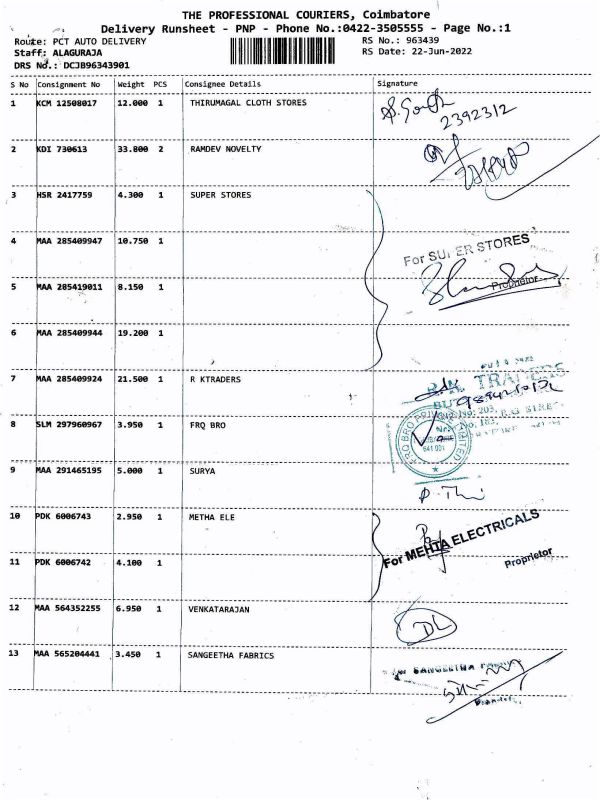 THE PROFESSIONAL COURIERS, Coimbatore
Delivery Runsheet - PNP - Phone No.:0422-3505555 - Page No.:1
Route: PCT AUTO DELIVERY RS No.: 963439
Staff: ALAGURAJA RS Date: 22-Jun-2022
DRS No.: DCJB96343901
S No Consignment No Weight PCS Consignee Details Signature
1 KCM 12508017 12.000 1 THIRUMAGAL CLOTH STORES
2392312
2 KDI 730613 33.800 2 RAMDEV NOVELTY
3 HSR 2417759 4.300 1 SUPER STORES
4 MAA 285409947 10.750 1
For SUPER STORES
5 MAA 285419011 8.150 1
Proprietor
6 MAA 285409944 19.200 1
7 MAA 285409924 21.500 1 R KTRADERS
R.K. TRADERS
8 SLM 297960967 3.950 1 FRQ BRO
641 001
9 MAA 291465195 5.000 1 SURYA
10 PDK 6006743 2.950 1 METHA ELE
For MEHTA ELECTRICALS
11 PDK 6006742 4.100 1
Proprietor
12 MAA 564352255 6.950 1 VENKATARAJAN
DL
13 MAA 565204441 3.450 1 SANGEETHA FABRICS
SANGEETHA